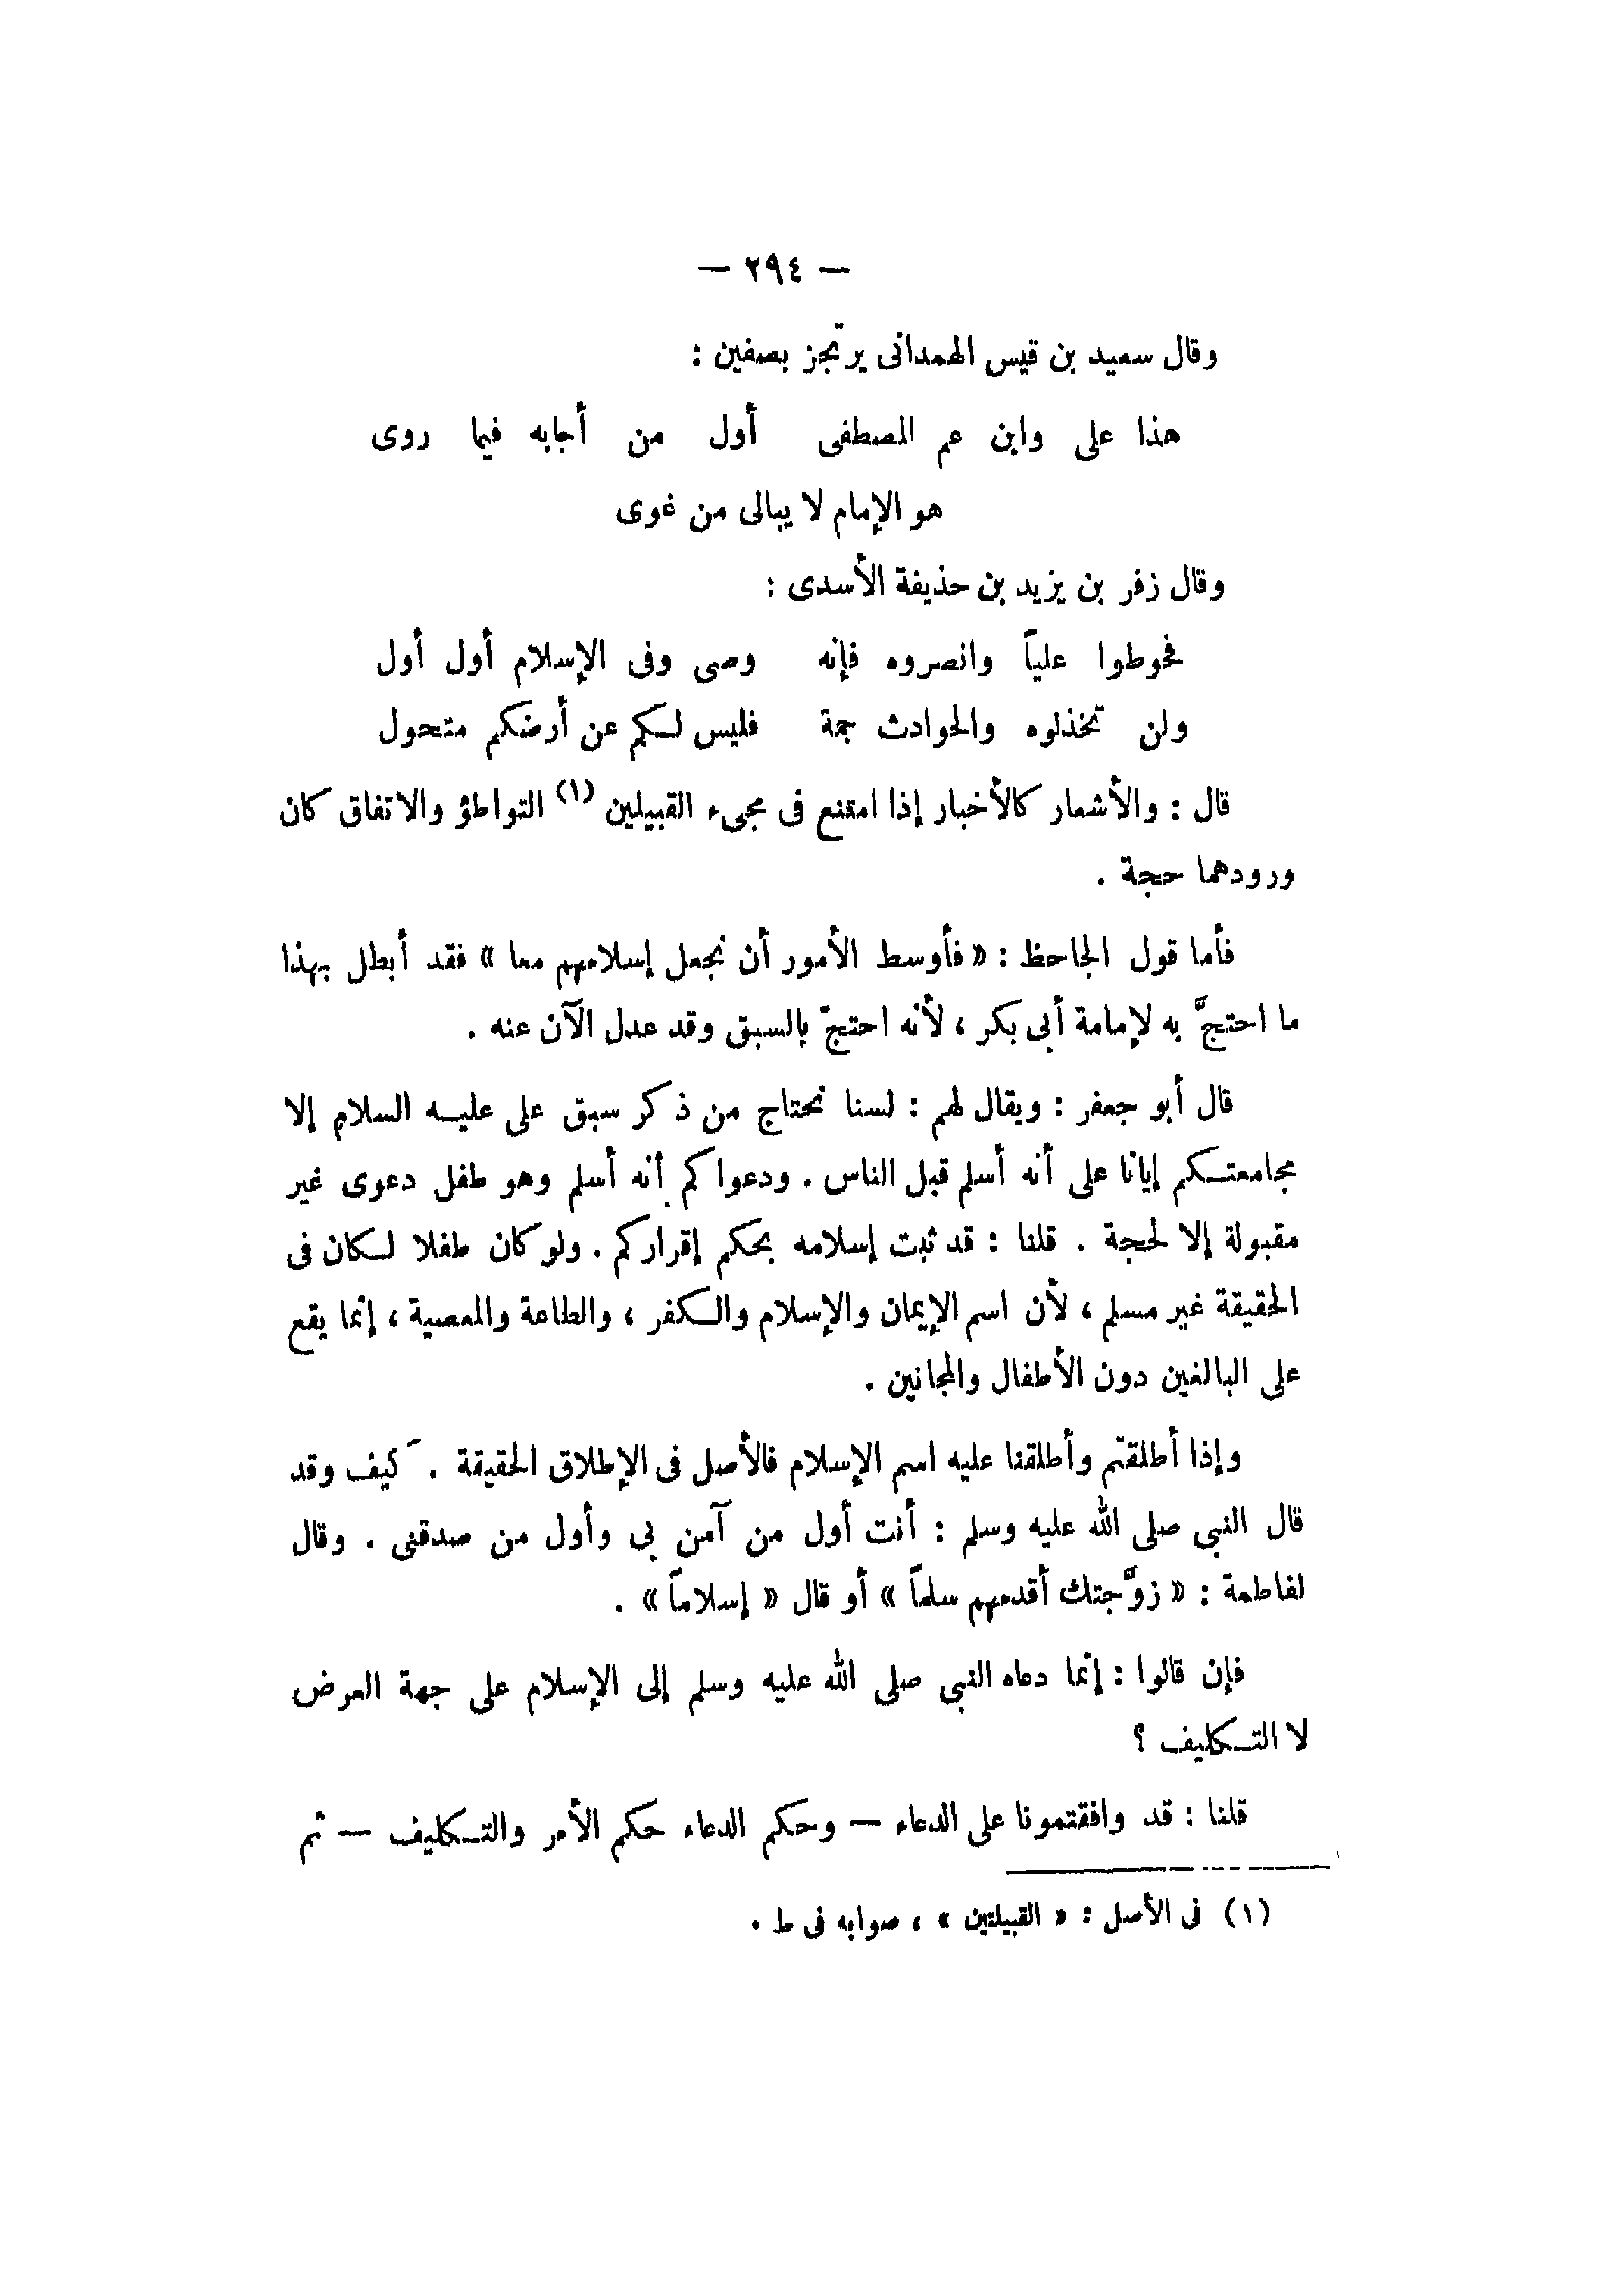 — ٢٩٤ —
وقال سعيد بن قيس الهمدانى يرتجز بصفين :
هذا على وابن عم المصطفى أول من أجابه فيما روى
هو الإمام لا يبالى من غوى
وقال زفر بن يزيد بن حذيفة الأسدى :
فحوطوا علياً وانصروه فإنه وصى وفى الإسلام أول أول
ولن تخذلوه والحوادث جمة فليس لكم عن أرضكم متحول
قال : والأشعار كالأخبار إذا امتنع فى مجىء القبيلين (١) التواطؤ والاتفاق كان
ورودهما حجة .
فأما قول الجاحظ : « فأوسط الأمور أن نجعل إسلامهم معا » فقد أبطل بهذا
ما احتجَّ به لإمامة أبى بكر ، لأنه احتجّ بالسبق وقد عدل الآن عنه .
قال أبو جعفر : ويقال لهم : لسنا نحتاج من ذكر سبق على عليه السلام إلا
مجامعتكم إيانا على أنه أسلم قبل الناس . ودعواكم أنه أسلم وهو طفل دعوى غير
مقبولة إلا لحجة . قلنا : قد ثبت إسلامه بحكم إقراركم . ولو كان طفلا لكان فى
الحقيقة غير مسلم ، لأن اسم الإيمان والإسلام والكفر ، والطاعة والمعصية ، إنما يقع
على البالغين دون الأطفال والمجانين .
وإذا أطلقتم وأطلقنا عليه اسم الإسلام فالأصل فى الإطلاق الحقيقة . كيف وقد
قال النبى صلى الله عليه وسلم : أنت أول من آمن بى وأول من صدقنى . وقال
لفاطمة : « زوَّجتك أقدمهم سلماً » أو قال « إسلاماً » .
فإن قالوا : إنما دعاه النبى صلى الله عليه وسلم إلى الإسلام على جهة العرض
لا التكليف ؟
قلنا : قد وافقتمونا على الدعاء — وحكم الدعاء حكم الأمر والتكليف — ثم
(١) فى الأصل : « القبيلتين » ، صوابه فى ط .